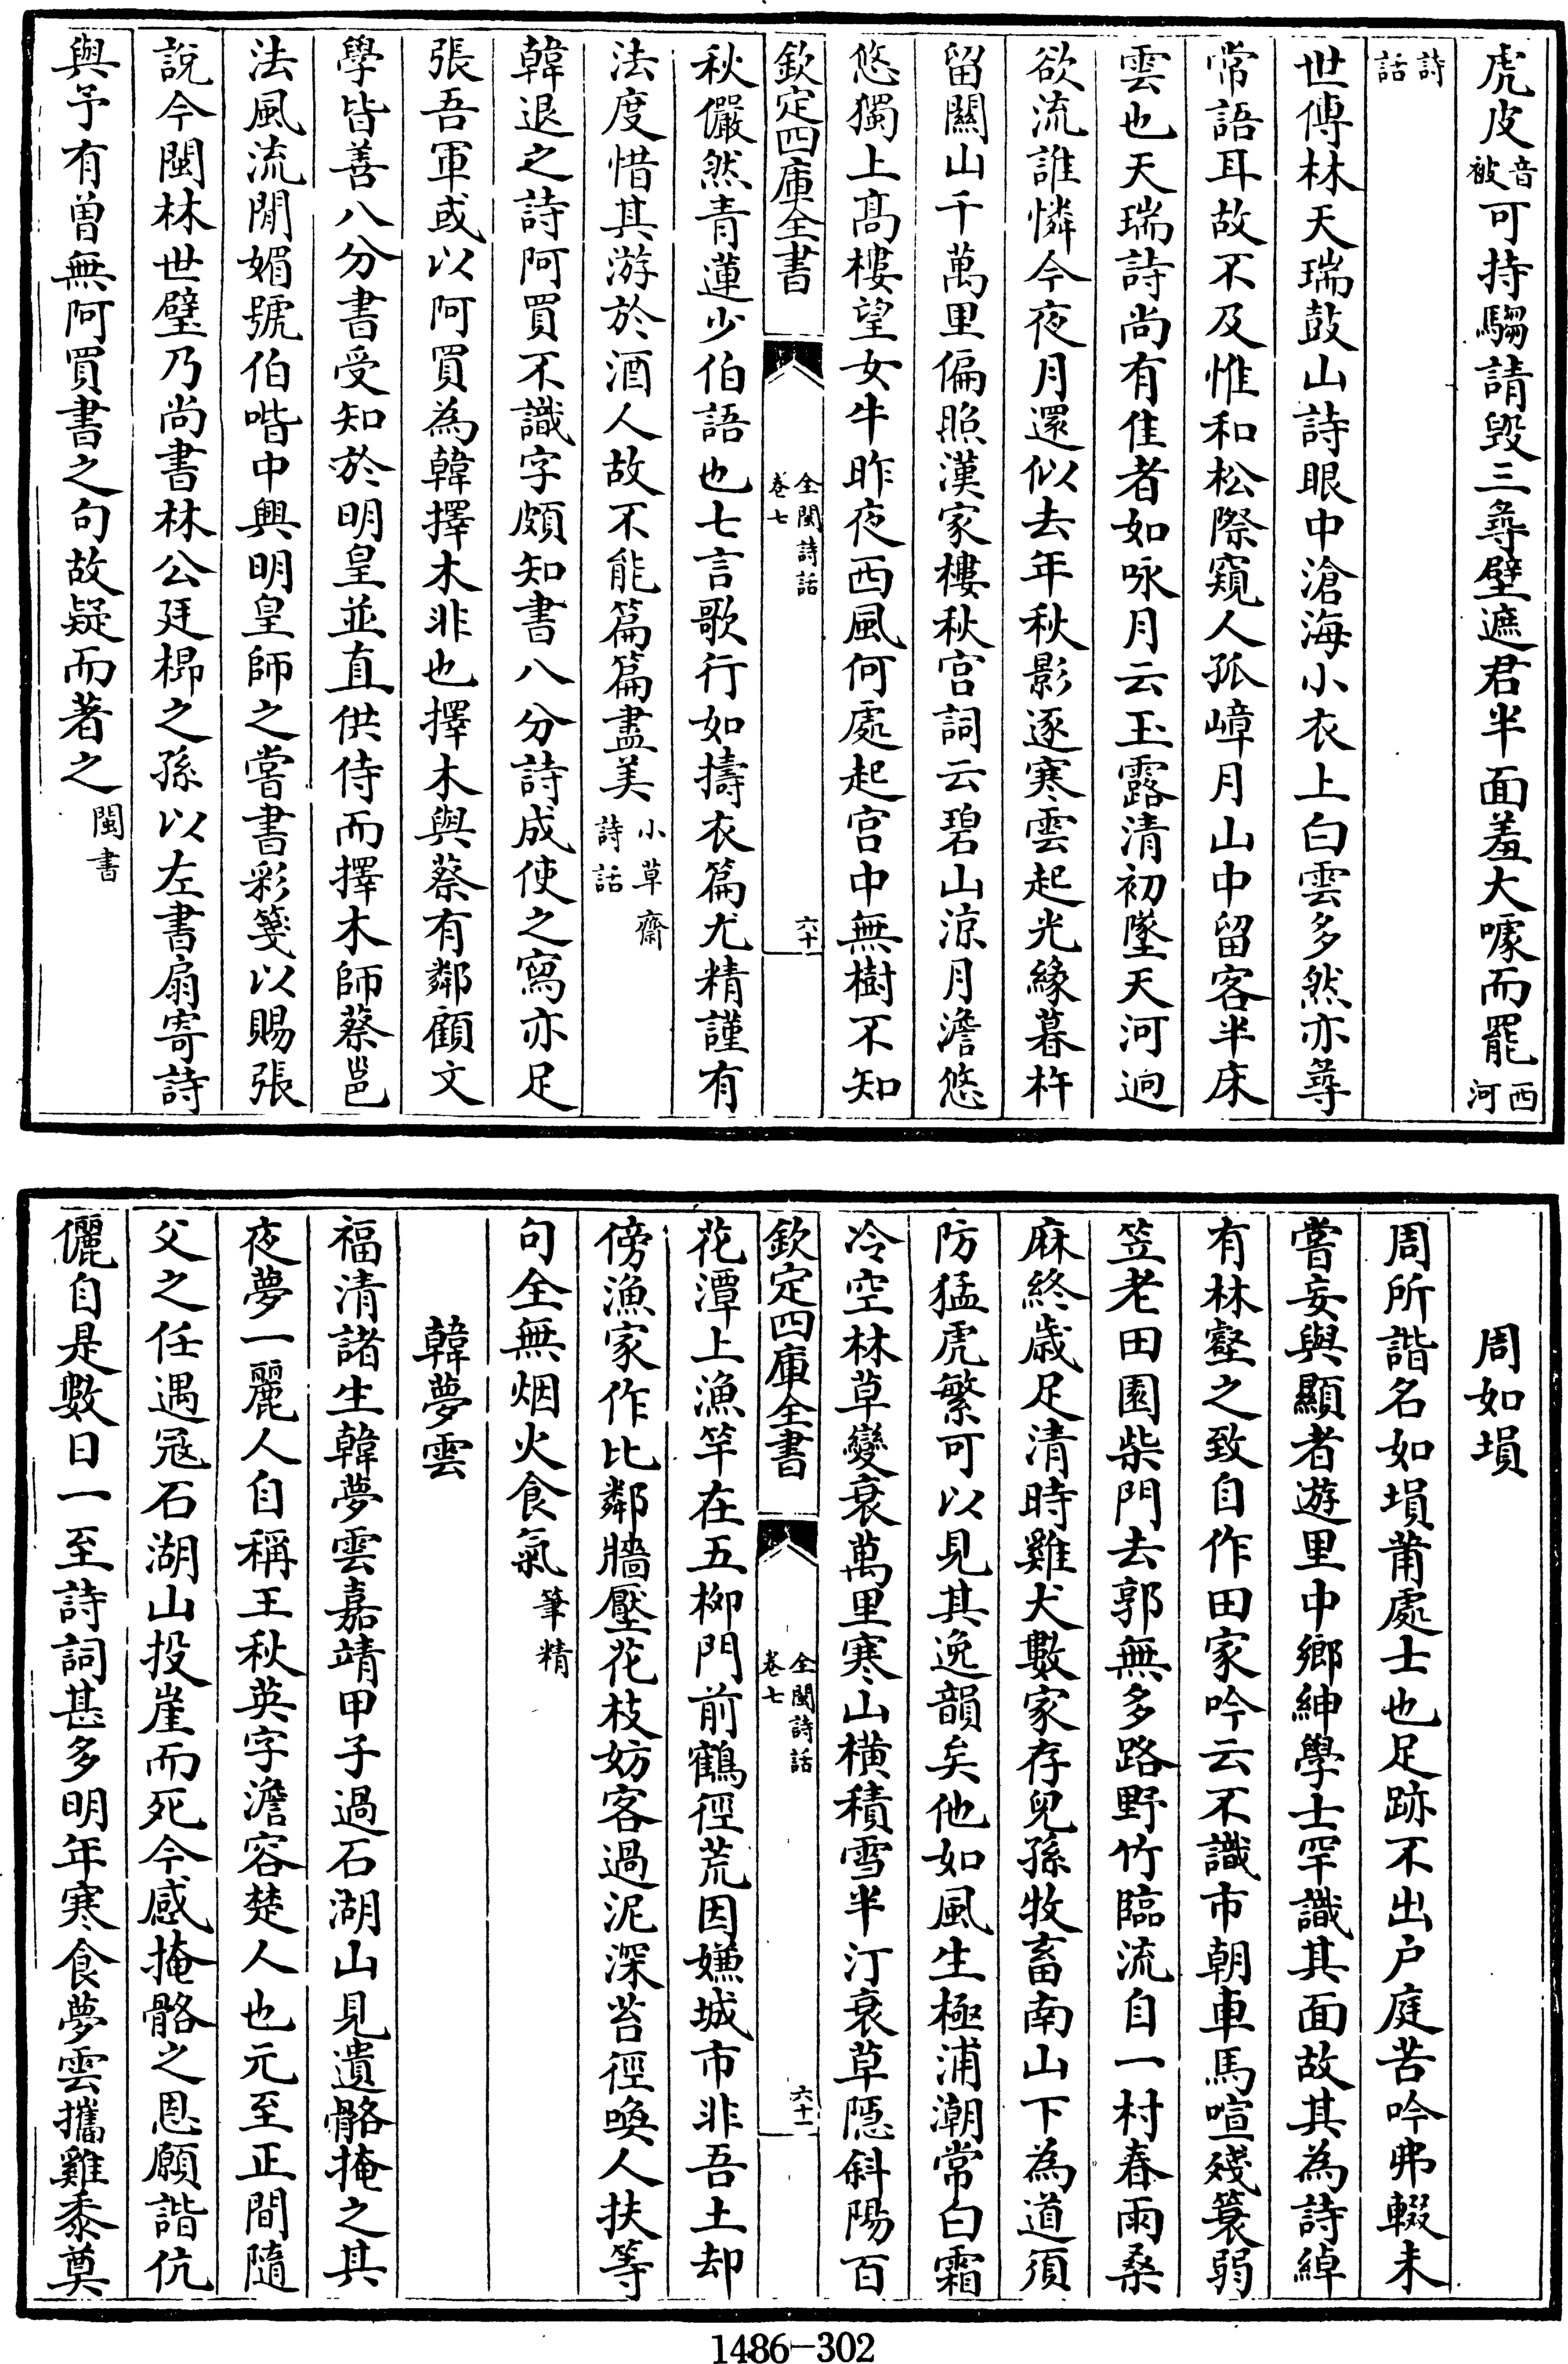 虎皮音被可持騶請毀三尋壁遮君半面羞大噱而罷西河
詩話
世傳林天瑞鼓山詩眼中滄海小衣上白雲多然亦尋
常語耳故不及惟和松際窺人孤嶂月山中留客半床
雲也天瑞詩尚有佳者如咏月云玉露清初墜天河迥
欲流誰憐今夜月還似去年秋影逐寒雲起光緣暮杵
留關山千萬里偏照漢家樓秋宮詞云碧山涼月澹悠
悠獨上高樓望女牛昨夜西風何處起宮中無樹不知
欽定四庫全書 全閩詩話卷七 六十
秋儼然青蓮少伯語也七言歌行如擣衣篇尤精謹有
法度惜其游於酒人故不能篇篇盡美小草齋詩話
韓退之詩阿買不識字頗知書八分詩成使之寫亦足
張吾軍或以阿買為韓擇木非也擇木與蔡有鄰顧文
學皆善八分書受知於明皇並直供侍而擇木師蔡邕
法風流閒媚號伯喈中興明皇師之嘗書彩箋以賜張
說今閩林世璧乃尚書林公廷㭿之孫以左書扇寄詩
與予有曾無阿買書之句故疑而著之閩書
周如塤
周所諧名如塤莆處士也足跡不出户庭苦吟弗輟未
嘗妄與顯者遊里中鄉紳學士罕識其面故其為詩綽
有林壑之致自作田家吟云不識市朝車馬喧殘簑弱
笠老田園柴門去郭無多路野竹臨流自一村春雨桑
麻終歲足清時雞犬數家存兒孫牧畜南山下為道須
防猛虎繁可以見其逸韻矣他如風生極浦潮常白霜
冷空林草變衰萬里寒山横積雪半汀衰草隱斜陽百
欽定四庫全書 全閩詩話卷七 六十一
花潭上漁竿在五柳門前鶴徑荒因嫌城市非吾土却
傍漁家作比鄰牆壓花枝妨客過泥深苔徑喚人扶等
句全無烟火食氣筆精
韓夢雲
福清諸生韓夢雲嘉靖甲子過石湖山見遺骼掩之其
夜夢一麗人自稱王秋英字澹容楚人也元至正間隨
父之任遇冦石湖山投崖而死今感掩骼之恩願諧伉
儷自是數日一至詩詞甚多明年寒食夢雲攜雞黍奠
1486-302